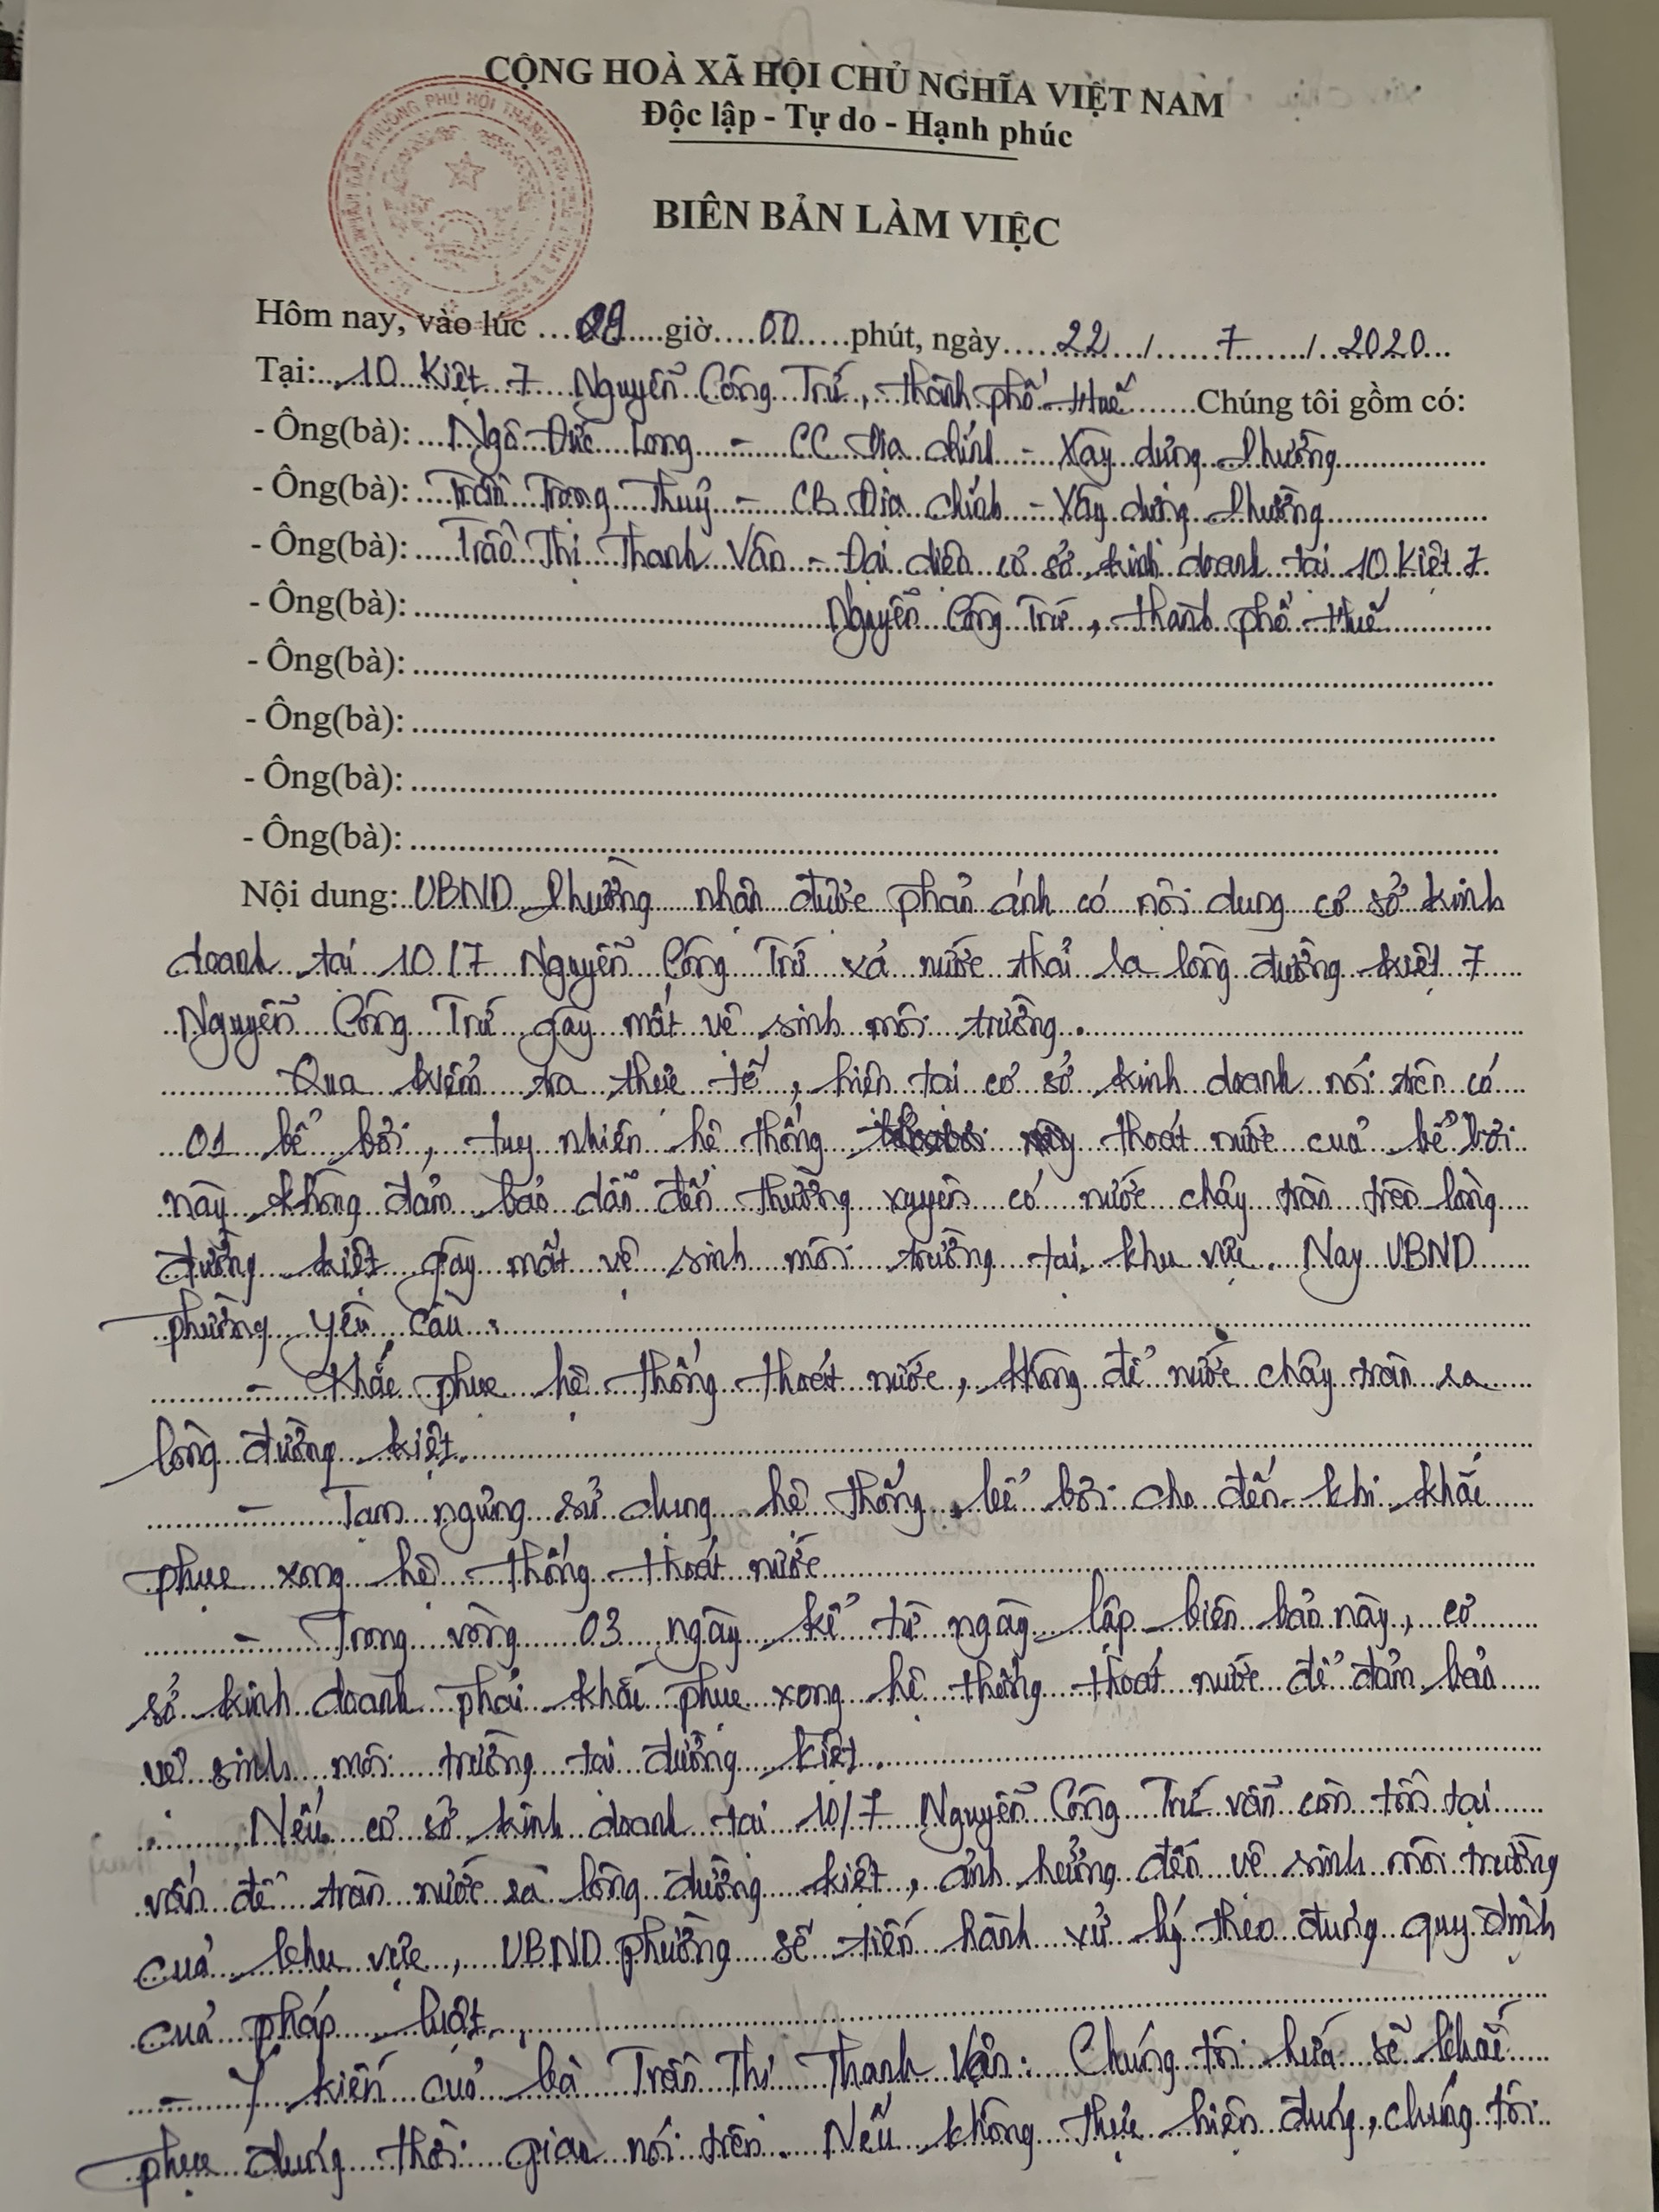 CỘNG HOÀ XÃ HỘI CHỦ NGHĨA VIỆT NAM
Độc lập - Tự do - Hạnh phúc
BIÊN BẢN LÀM VIỆC
Hôm nay, vào lúc ... 09 ... giờ ... 00 ... phút, ngày ... 22 / ... 7 ... / 2020 ...
Tại: 10 Kiệt 7 Nguyễn Công Trứ, thành phố Huế ... Chúng tôi gồm có:
- Ông(bà): Ngô Đức Long - CC Địa chính - Xây dựng Phường
- Ông(bà): Trần Trọng Thuỷ - CB Địa chính - Xây dựng Phường
- Ông(bà): Trần Thị Thanh Vân - Đại diện cơ sở kinh doanh tại 10 Kiệt 7
- Ông(bà): Nguyễn Công Trứ, thành phố Huế
- Ông(bà):
- Ông(bà):
- Ông(bà):
- Ông(bà):
Nội dung: UBND Phường nhận được phản ánh có nội dung cơ sở kinh
doanh tại 10/7 Nguyễn Công Trứ xả nước thải ra lòng đường kiệt 7
Nguyễn Công Trứ gây mất vệ sinh môi trường.
Qua kiểm tra thực tế, hiện tại cơ sở kinh doanh nói trên có
01 bể bơi, tuy nhiên hệ thống thoát nước của bể bơi
này không đảm bảo dẫn đến thường xuyên có nước chảy tràn trên lòng
đường kiệt gây mất vệ sinh môi trường tại khu vực. Nay UBND
phường yêu cầu:
- Khắc phục hệ thống thoát nước, không để nước chảy tràn ra
lòng đường kiệt.
- Tạm ngừng sử dụng hệ thống bể bơi cho đến khi khắc
phục xong hệ thống thoát nước
- Trong vòng 03 ngày kể từ ngày lập biên bản này, cơ
sở kinh doanh phải khắc phục xong hệ thống thoát nước để đảm bảo
vệ sinh môi trường tại đường kiệt.
Nếu cơ sở kinh doanh tại 10/7 Nguyễn Công Trứ vẫn còn tồn tại
vấn đề tràn nước ra lòng đường kiệt, ảnh hưởng đến vệ sinh môi trường
của khu vực, UBND phường sẽ tiến hành xử lý theo đúng quy định
của pháp luật.
- Ý kiến của bà Trần Thị Thanh Vân: Chúng tôi hứa sẽ khắc
phục đúng thời gian nói trên. Nếu không thực hiện đúng, chúng tôi